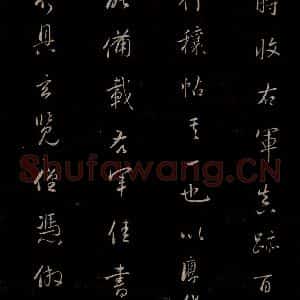 時收右軍真跡百
行穰帖其一也以廓
備載右軍佳書
具玄覽僅馮倣
Shufawang.CN